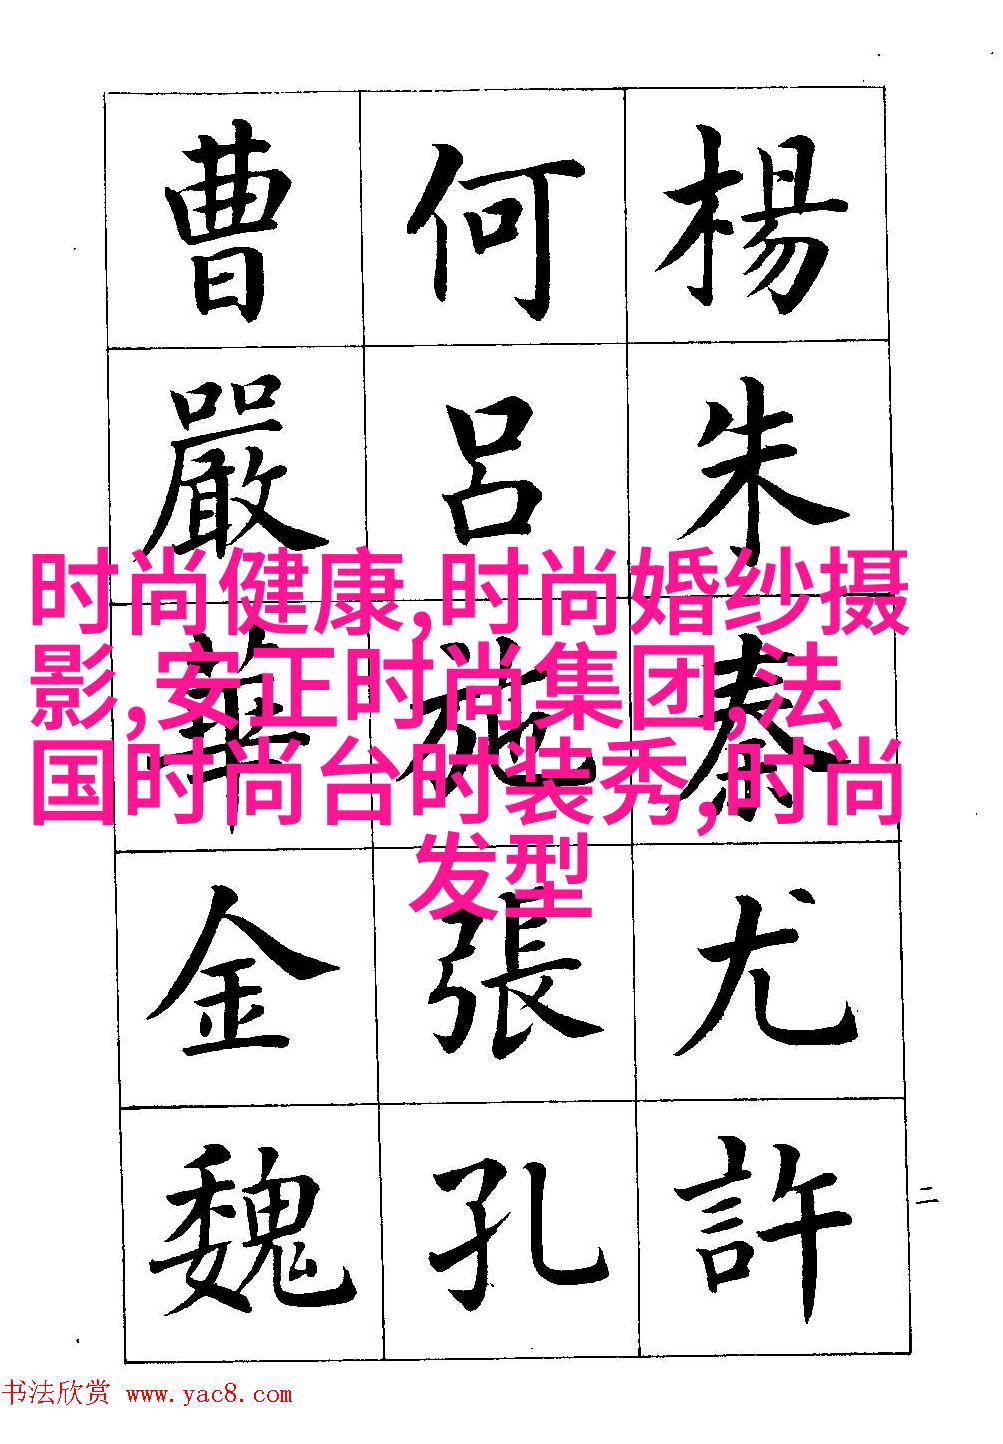 楊朱秦尤許
何呂施張孔
曹嚴華金魏
二
时尚健康,时尚婚纱摄
影,安正时尚集团,法
国时尚台时装秀,时尚
发型
书法欣赏 www.yac8.com